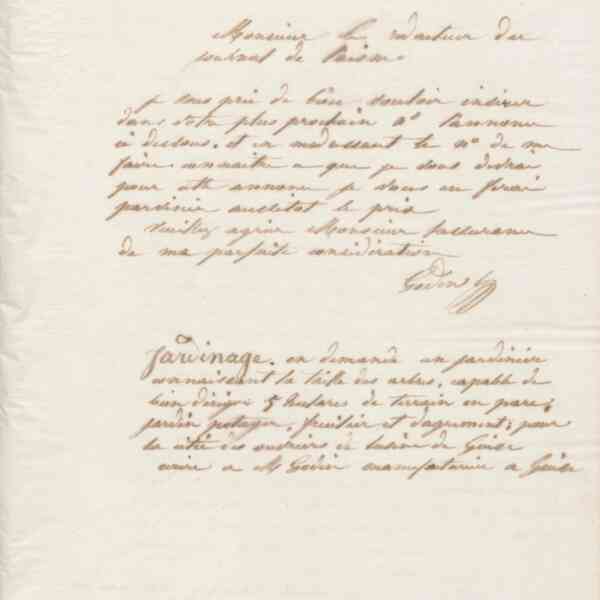 Monsieur le redacteur du
journal de
je vous prie de bien vouloir inserer
dans votre plus prochain n° l'annonce
ci dessous. et en m'adressant le n° de me
faire connaitre ce que je vous devrai
pour cette annonce je vous en ferai
parvenir aussitot le prix
Veuillez agréer Monsieur l'assurance
de ma parfaite consideration
Godin
Jardinage. on demande un jardinier
connaissant la taille des arbres, capable de
bien diriger 5 hectares de terrain en parc,
jardin potager, fruitier et d'agrement; pour
la cité des ouvriers de l'usine de Guise
ecrire a M Godin manufacturier a Guise